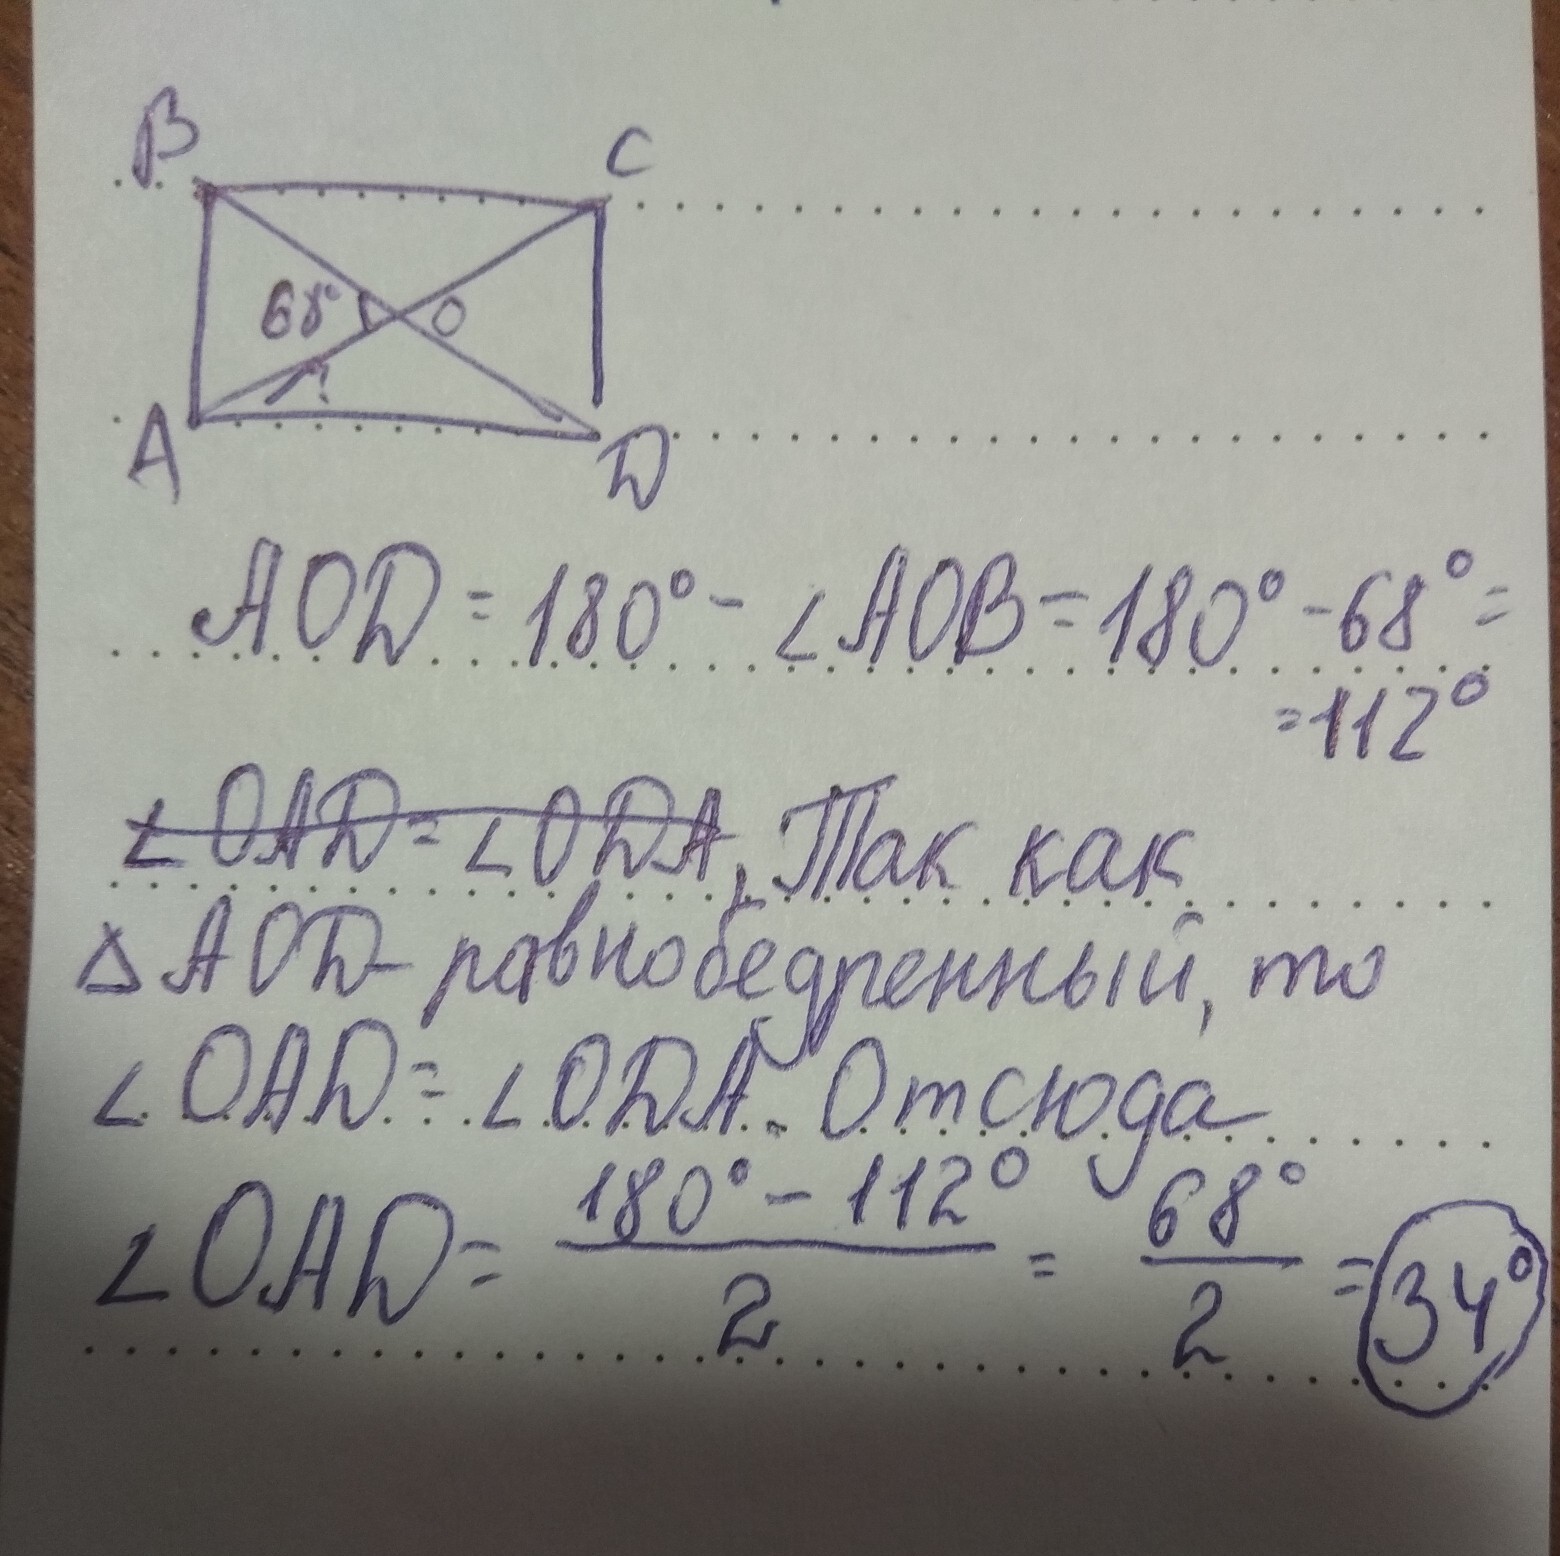 B
C
68°
O
?
A
D
AOD = 180° - ∠AOB = 180° - 68° =
= 112°
∠OAD = ∠ODA, Так как
△AOD - равнобедренный, то
∠OAD = ∠ODA. Отсюда
∠OAD = (180° - 112°)/2 = 68°/2 = 34°